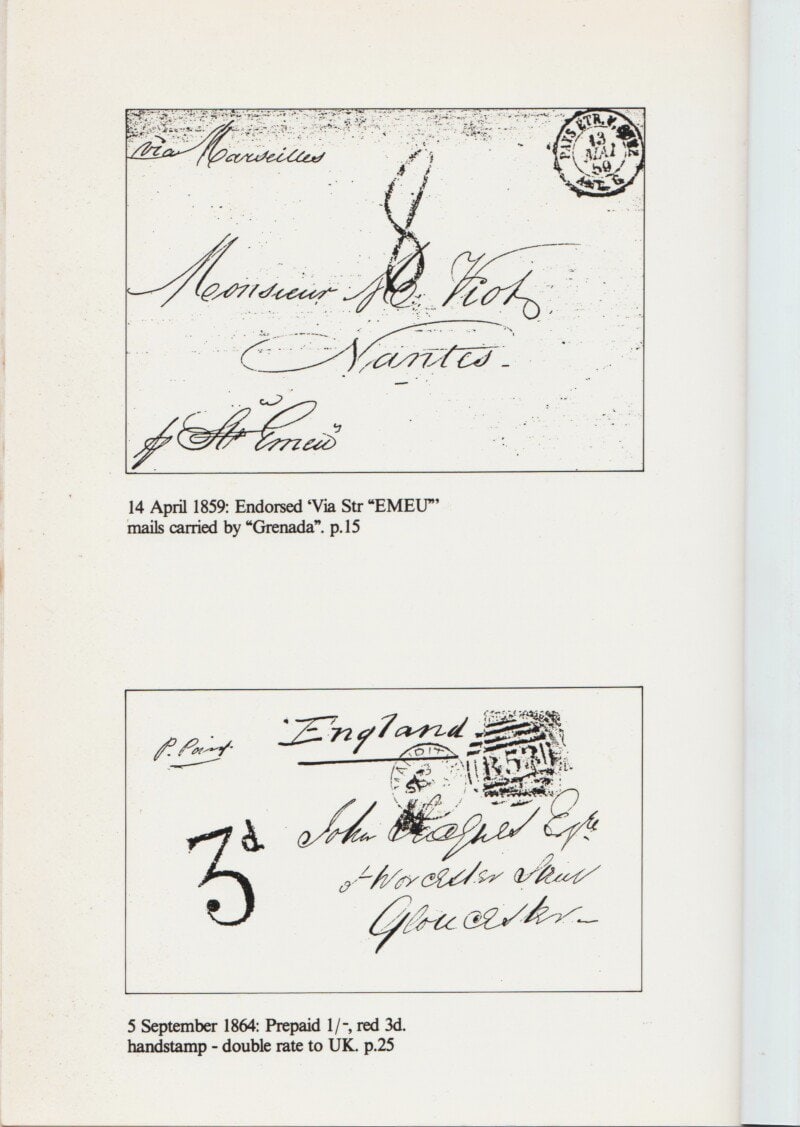 via Marseilles
PAYS ÉTR. V. SUEZ
13
MAI
59
AMB. G
8
Monsieur M. Viot
Nantes-
p Str "Emeu"
14 April 1859: Endorsed ‘Via Str “EMEU”’
mails carried by “Grenada”. p.15
P. Paid
England
MAURITIUS
B53
3d
John Esqre
Worcester
Gloucester-
5 September 1864: Prepaid 1/-, red 3d.
handstamp - double rate to UK. p.25